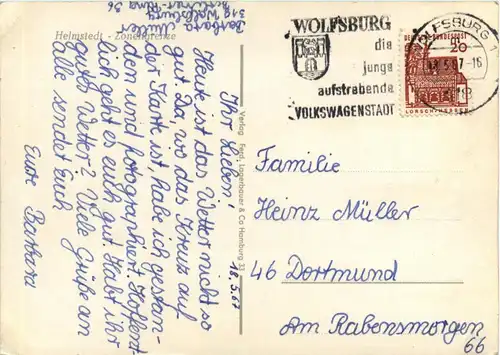 Barbara Müller
318 Wolfsburg
56
Helmstedt - Zonengrenze
18.5.67
Ihr Lieben!
Heute ist das Wetter nicht so
gut. Da, wo das Kreuz auf
der Karte ist, habe ich gestan-
den und fotographiert. Hoffent-
lich geht es euch gut. Habt ihr
gutes Wetter? Viele Grüße an
alle sendet Euch
Eure Barbara
Verlag Ferd. Lagerbauer & Co Hamburg 33
WOLFSBURG
die
junge
aufstrebende
VOLKSWAGENSTADT
WOLFSBURG 1
.5.67-16
318
DEUTSCHE BUNDESPOST
20
LORSCH/HESSEN
Familie
Heinz Müller
46 Dortmund
Am Rabensmorgen
66